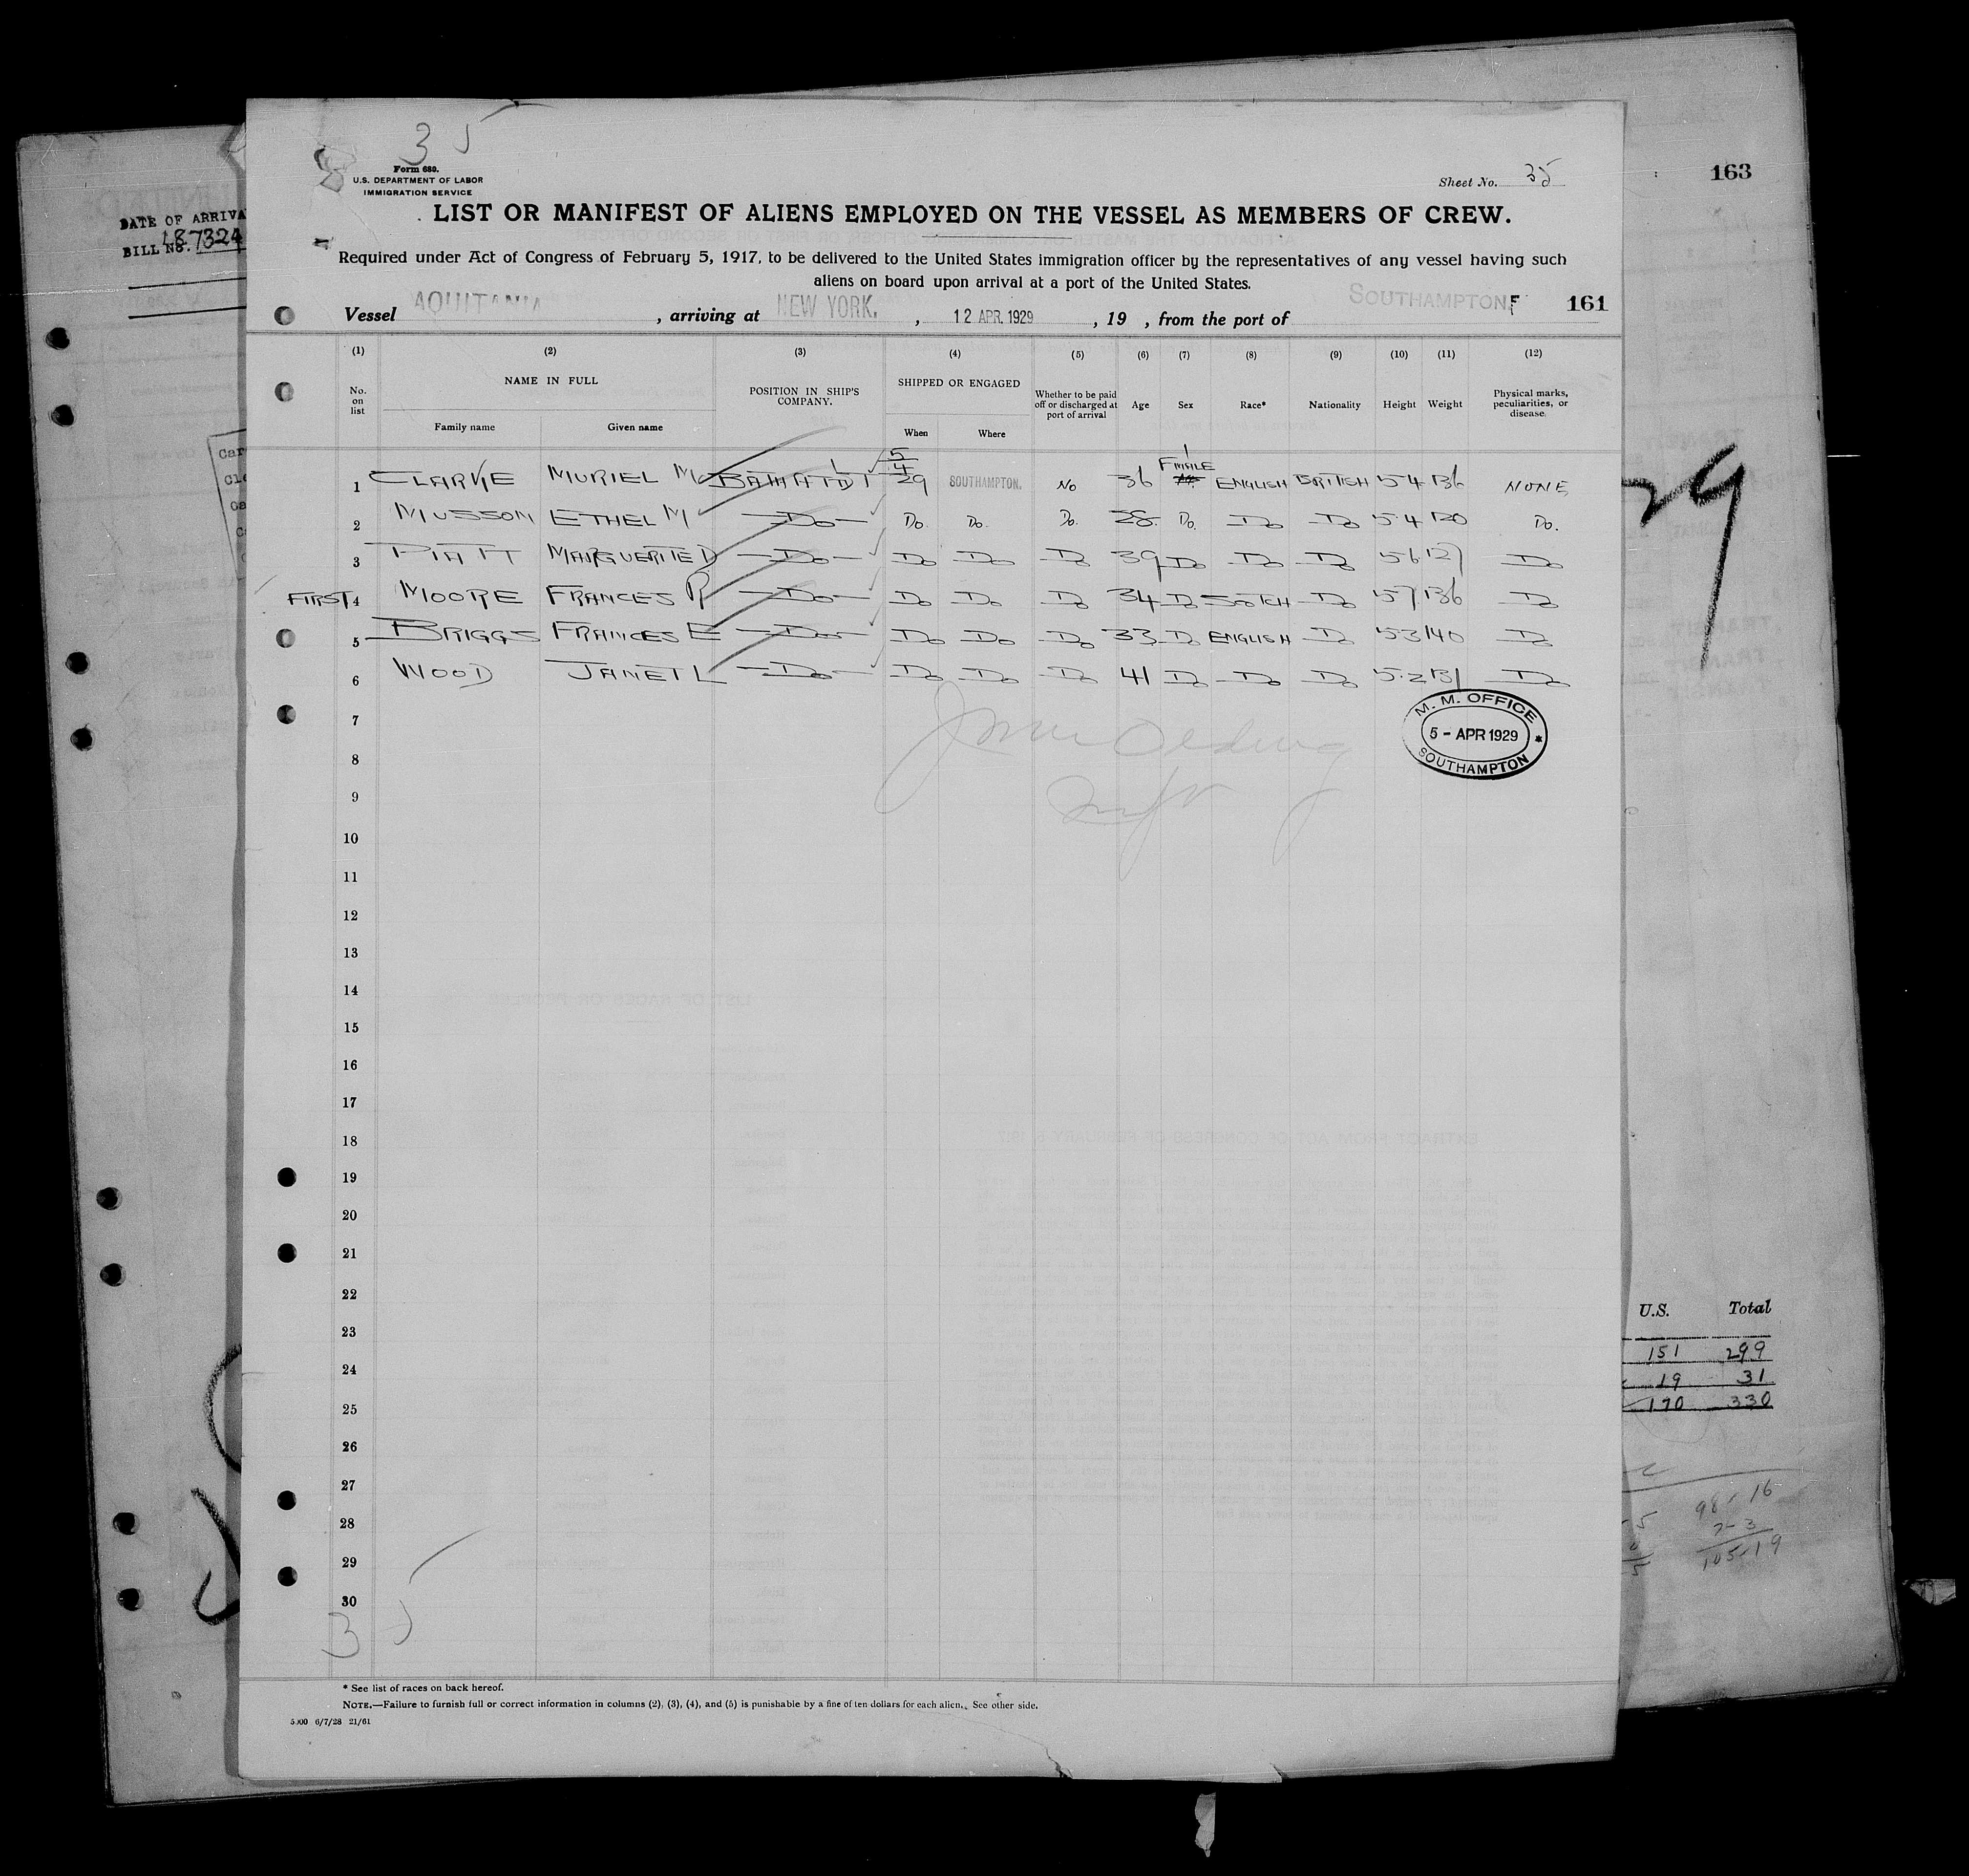 3 5
Form 680.
U.S. DEPARTMENT OF LABOR
IMMIGRATION SERVICE
Sheet No. 35
163
LIST OR MANIFEST OF ALIENS EMPLOYED ON THE VESSEL AS MEMBERS OF CREW.
DATE OF ARRIVA
BILL No. 187324
Required under Act of Congress of February 5, 1917, to be delivered to the United States immigration officer by the representatives of any vessel having such
aliens on board upon arrival at a port of the United States.
Vessel AQUITANIA, arriving at NEW YORK., 12 APR. 1929, 19 , from the port of SOUTHAMPTON. F 161
(1) (2) (3) (4) (5) (6) (7) (8) (9) (10) (11) (12)
No. on list NAME IN FULL POSITION IN SHIP'S COMPANY. SHIPPED OR ENGAGED Whether to be paid off or discharged at port of arrival Age Sex Race* Nationality Height Weight Physical marks, peculiarities, or disease.
Family name Given name When Where
1 CLARKE MURIEL M 5/4 29 SOUTHAMPTON. No 36 FMALE ENGLISH BRITISH 5·4 136 NONE
2 MUSSOM ETHEL M Do Do. Do. Do. 28 Do. Do Do 5·4 120 Do.
3 PIATT MARGUERITE D Do Do Do Do 39 Do Do Do 5·6 127 Do
FIRST 4 MOORE FRANCES R Do Do Do Do 34 Do SCOTCH Do 5·7 136 Do
5 BRIGGS FRANCES E Do Do Do Do 33 Do ENGLISH Do 5·3 140 Do
6 WOOD JANET L Do Do Do Do 41 Do Do Do 5·2 131 Do
M. M. OFFICE
5 - APR 1929
SOUTHAMPTON
29
7
8
9
10
11
12
13
14
15
16
17
18
19
20
21
22
23
24
25
26
27
28
29
30
3 5
U.S. Total
151 299
19 31
170 330
98-16
7-3
105-19
* See list of races on back hereof.
NOTE.—Failure to furnish full or correct information in columns (2), (3), (4), and (5) is punishable by a fine of ten dollars for each alien. See other side.
5000 6/7/28 21/61